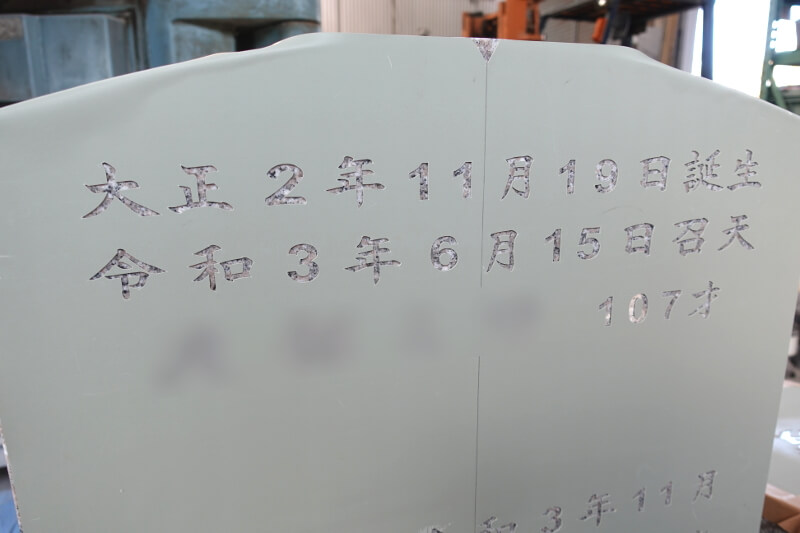 大正2年11月19日誕生
令和3年6月15日召天
107才
令和3年11月